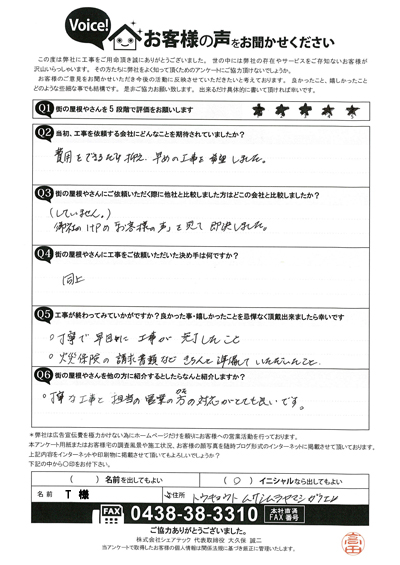 Voice!
お客様の声をお聞かせください
この度は弊社に工事をご用命頂き誠にありがとうございました。世の中には弊社の存在やサービスをご存知ないお客様が
沢山いらっしゃいます。その方たちに弊社をよく知って頂くためのアンケートにご協力頂けないでしょうか。
お客様のご意見をお聞かせいただき今後の活動に反映させていただきたいと考えております。良かったこと、嬉しかったこと
どのような些細な事でも結構です。是非ご協力お願い致します。出来るだけ具体的に書いて頂ければ幸いです。
Q1 街の屋根やさんを5段階で評価をお願いします ★ ★ ★ ★ ★
Q2 当初、工事を依頼する会社にどんなことを期待されていましたか?
費用をできるだけ抑え、早めの工事を希望しました。
Q3 街の屋根やさんにご依頼いただく際に他社と比較しました方はどこの会社と比較しましたか?
(していません。)
御社のHPの「お客様の声」を見て即決しました。
Q4 街の屋根やさんに工事をご依頼いただいた決め手は何ですか?
同上
Q5 工事が終わってみていかがですか?良かった事・嬉しかったことを忌憚なく頂戴出来ましたら幸いです
○丁寧で早目に工事が完了したこと
○火災保険の請求書類など きちんと準備していただいたこと.
Q6 街の屋根やさんを他の方に紹介するとしたらなんと紹介しますか?
○丁寧な工事と担当の営業の方の対応がとても良いです。
*弊社は広告宣伝費を極力かけない為にホームページだけを頼りにお客様への営業活動を行っております。
本アンケート用紙またはお客様宅の調査風景や施工状況、お客様の顔写真を随時ブログ形式のインターネットに掲載させて頂いております。
上記内容をインターネットや印刷物に掲載させて頂いてもよろしいでしょうか?
下記の中から〇印をお付下さい。
( )名前を出してもよい (○)イニシャルなら出してもよい
名前 T 様 ご住所 トウキョウト ムサシムラヤマシ
FAX 0438-38-3310 本社直通 FAX番号
ご協力ありがとうございました。
株式会社シェアテック 代表取締役 大久保 誠二
当アンケートで取得したお客様の個人情報は関係法規に基づき厳正に管理いたします。